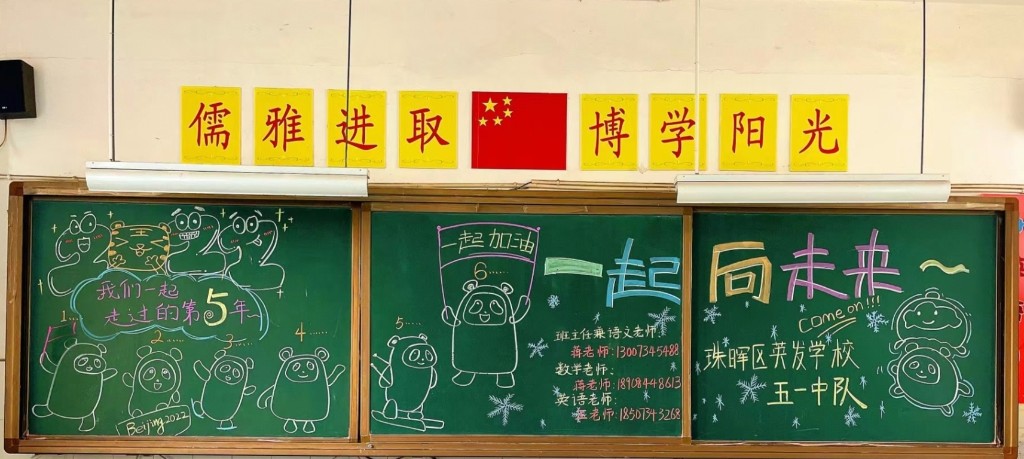 儒雅进取 博学阳光
2022
我们一起
走过的第5年
1...
2......
3......
4......
Beijing 2022
5......
一起加油
6......
一起向未来~
come on!!!
班主任兼语文老师
蒋老师:13007345488
数学老师:
蒋老师:18908448613
英语老师:
老师:18507343268
珠晖区英发学校
五一中队